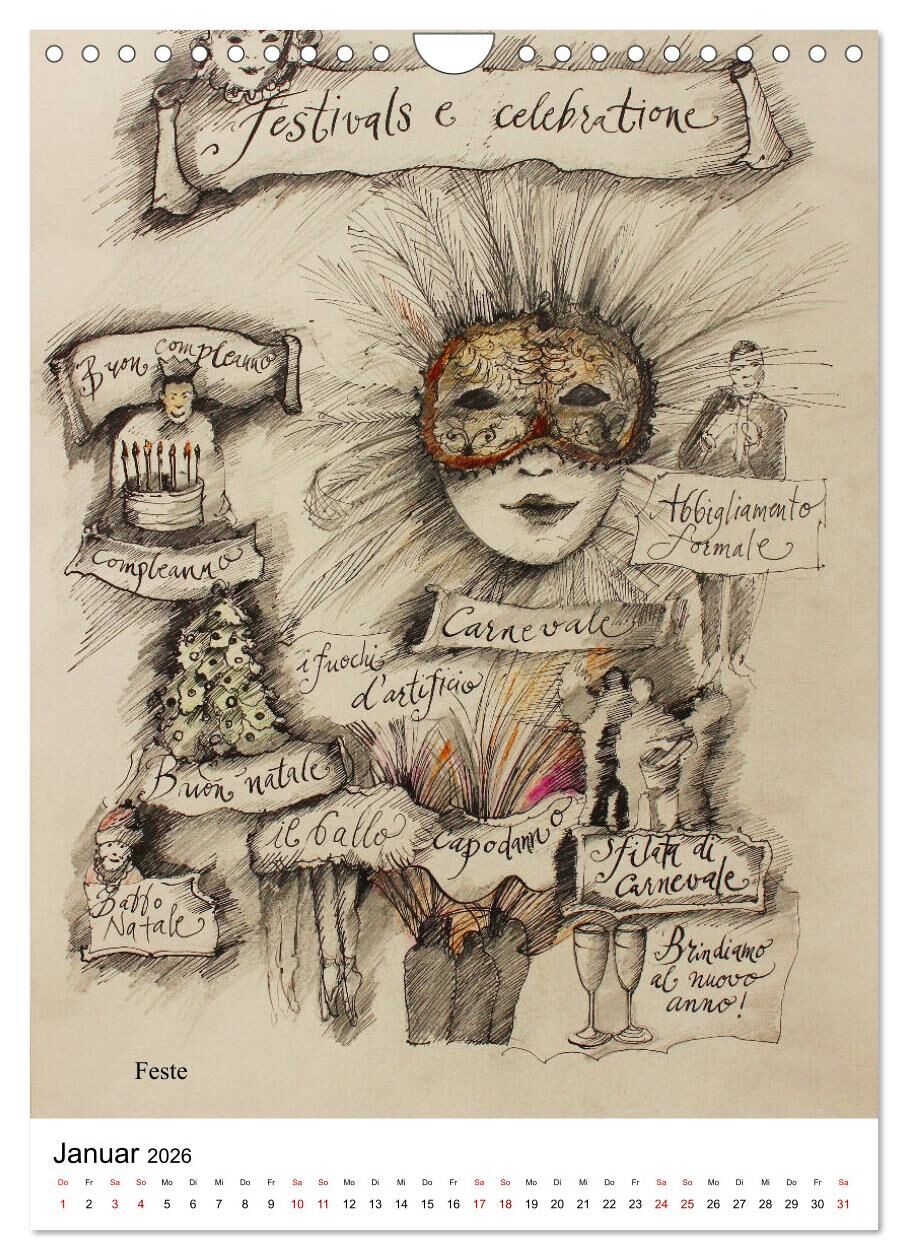 Festivals e celebratione
Buon compleanno
Abbigliamento
formale
compleanno
Carnevale
i fuochi
d'artificio
Buon natale
il ballo
capodanno
Sfilata di
Carnevale
Babbo
Natale
Brindiamo
al nuovo
anno!
Feste
Januar 2026
Do Fr Sa So Mo Di Mi Do Fr Sa So Mo Di Mi Do Fr Sa So Mo Di Mi Do Fr Sa So Mo Di Mi Do Fr Sa
1 2 3 4 5 6 7 8 9 10 11 12 13 14 15 16 17 18 19 20 21 22 23 24 25 26 27 28 29 30 31